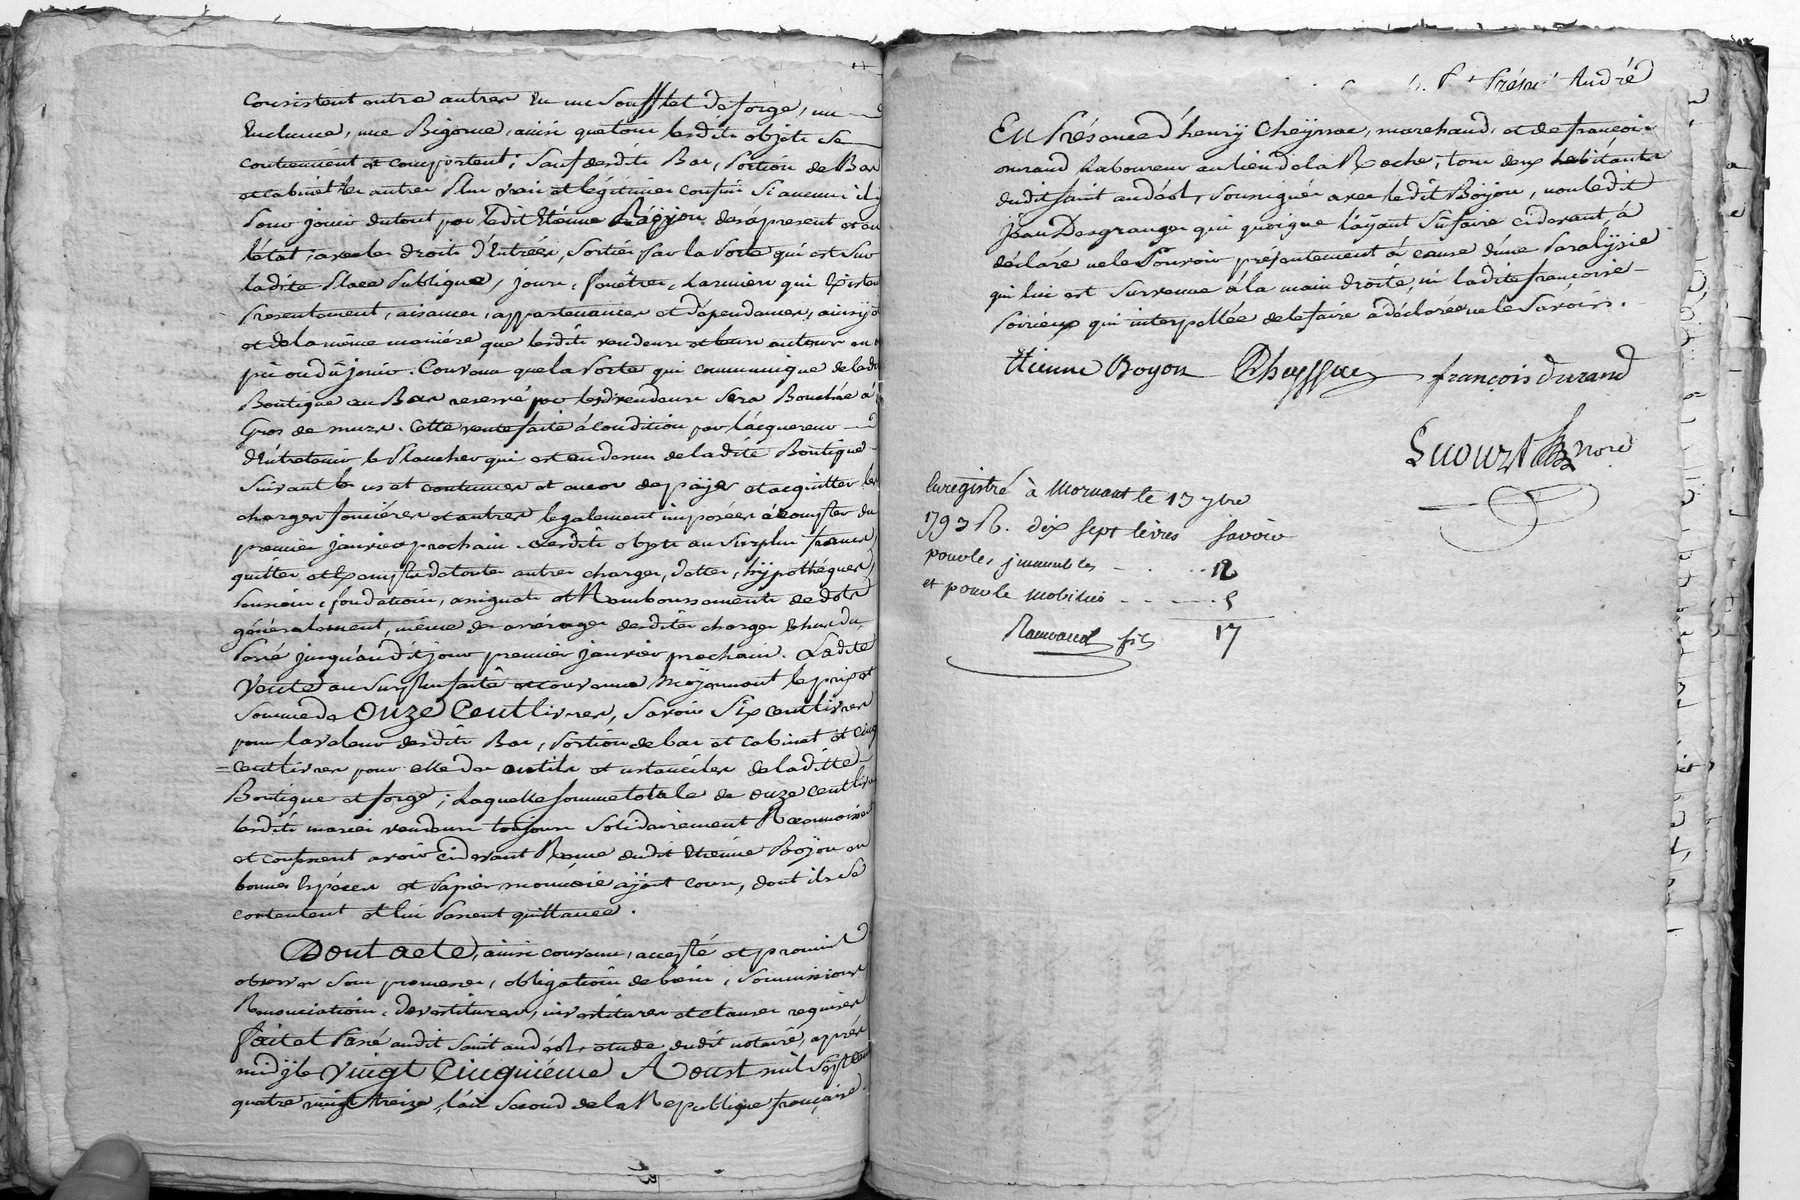 Consistent entre autres en un soufflet de forge, une
Enclume, une Bigorne, ainsi que tous lesdits objets se
contiennent et comportent; sauf desdits Bas, portion de Bas
et cabinet les autres plus vrais et légitimes confins si aucuns il y
pour jouir du tout par ledit Etienne Bojjon dès à present et en
l'état, avec les droits d'Entrées, sorties par la porte qui est sur
ladite place publique, jours, fenêtres, Larmiers qui existent
presentement, aisances, appartenances et dépendances, ainsy
et de la même manière que lesdits vendeurs et leurs auteurs en
pû ou dû jouir. Convenu que la porte qui communique de lad.
Boutique au Bas reservé par lesd vendeurs sera Bouchée à
Gros de murs. Cette vente faite à condition par l'acquereur
d'Entretenir le plancher qui est au dessus de ladite Boutique
suivant les us et coutumes et encor de païer et acquitter les
charges foncières et autres legalement imposées à compter du
premier janvier prochain. Lesdits objets au surplus francs,
quittes et Exempts de toutes autres charges, dettes, hÿpothèques,
pensions, fondations, assignats et Remboursements de dots
généralement, même des arrérages desdites charges Echus du
passé jusqu'audit jour premier janvier prochain. Ladite
Vente au surplus faite et convenue Moÿennant le prix et
somme de Onze Cent livres, savoir six cent livres
pour la valeur desdits Bas, portion de bas et cabinet et cinq
= cent livres pour celle des outils et ustanciles de laditte
Boutique et forge; Laquelle somme totale de onze cent livres
lesdits mariés vendeurs toujours solidairement Reconnoissent
et confessent avoir cidevant Reçue dudit Etienne Bojon en
bonnes Espèces et papier monnoie aÿant cours, dont ils se
contentent et lui passent quittance.
Dont acte, ainsi convenu, accepté et promis
observer sous promesses, obligation de biens, soumissions
Renonciations, devestitures, investitures et clauses requises
Fait et Passé audit saint andéol, etude dudit notaire, après
midÿ le Vingt Cinquième Aoust mil sept cent
quatre vingt treize, l'an second de la Republique française.
André
En Présence d'henrÿ Cheÿssac, marchand, et de françois
durand Laboureur au lieu de la Roche, tous deux habitants
dudit saint andéol, soussignés avec ledit Bojon, non ledit
jean Desgranges qui quoique l'aÿant sû faire cidevant, à
déclaré ne le Pouvoir présentement à cause d'une Paralÿsie
qui lui est survenue à la main droite, ni ladite françoise
Poirieux qui interpellée de le faire a déclaré ne le savoir.
Etienne Boyon Cheyssac françois durand
Enregistré à Mornant le 13 7bre
1793 R. dix sept livres savoir
pour les immeubles - - - 12
et pour le mobilier - - - 5
17
fils